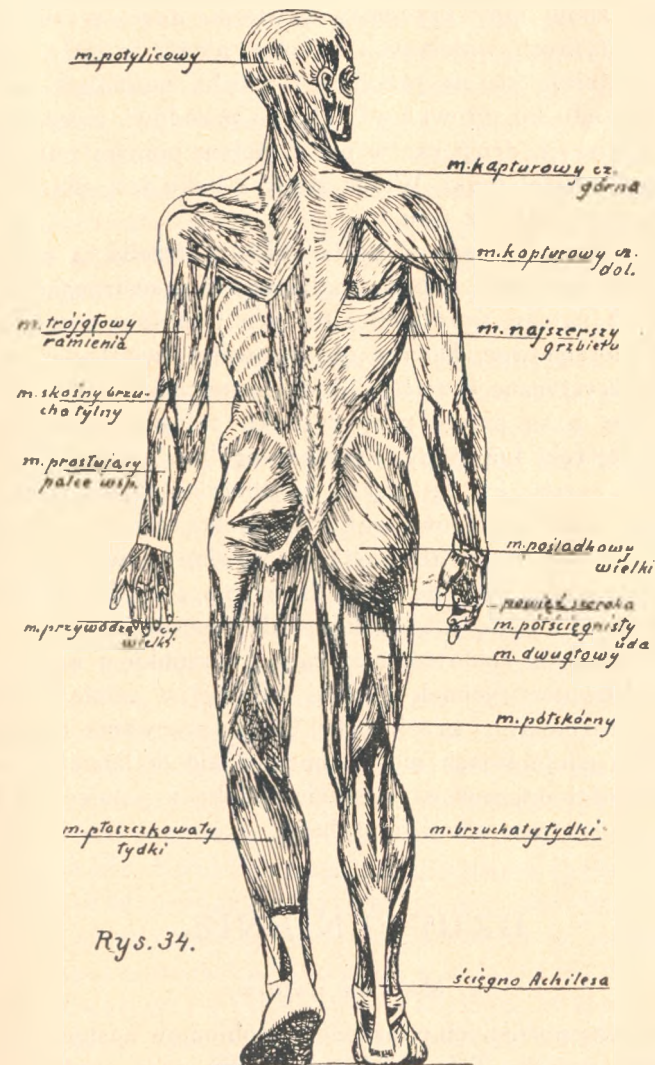 m. potylicowy
m. kapturowy cz.
górna
m. kapturowy cz.
dol.
m. trójgłowy
ramienia
m. najszerszy
grzbietu
m. skośny brzu-
cha tylny
m. prostujący
palce wsp.
m. pośladkowy
wielki
powięź szeroka
m. przywodzący
wielki
m. półścięgnisty
uda
m. dwugłowy
m. półskórny
m. płaszczkowaty
łydki
m. brzuchaty łydki
Rys. 34.
ścięgno Achilesa